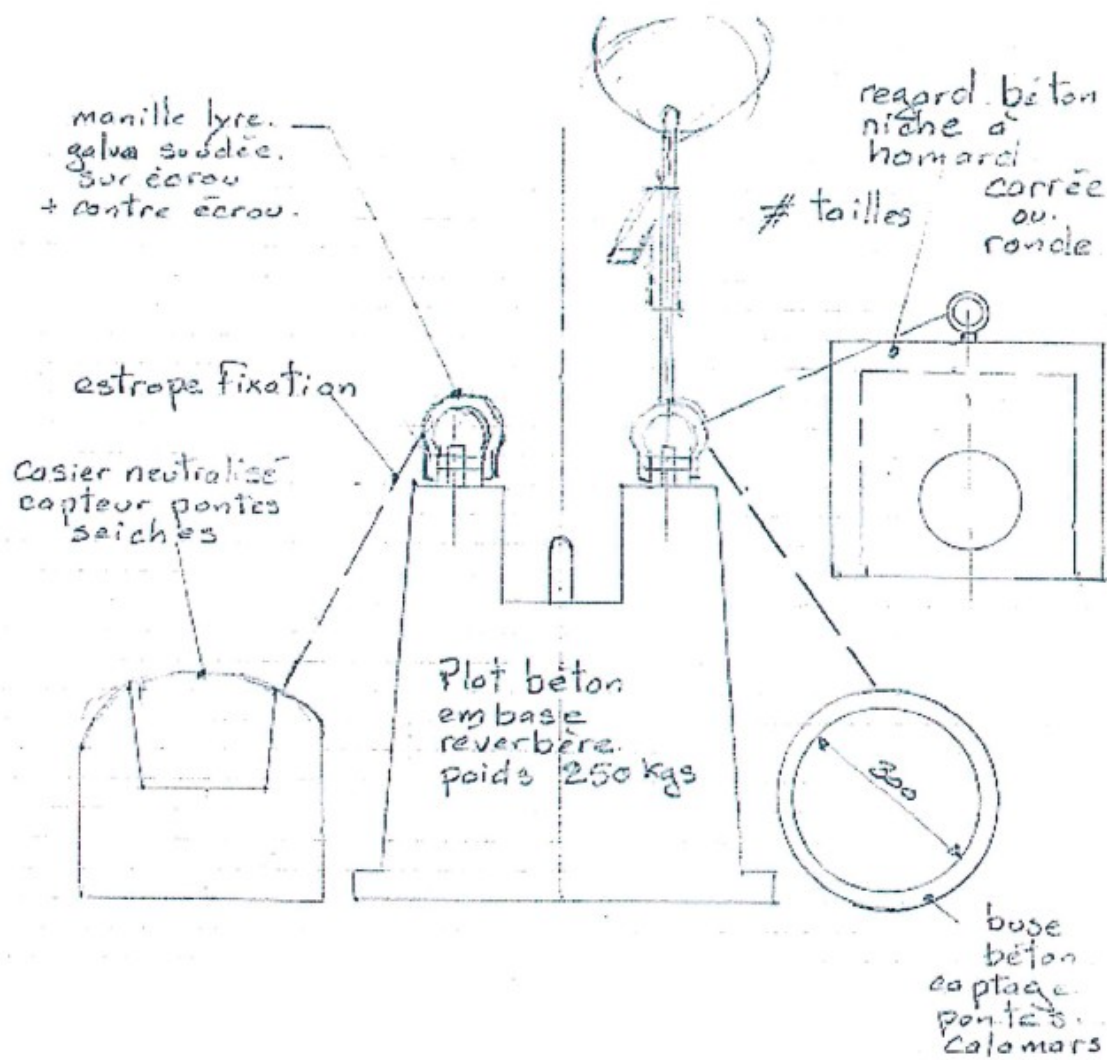 manille lyre.
galva soudée.
sur écrou
+ contre écrou.
regard béton
niche à
homard
carrée
ou.
ronde
# tailles
estrope fixation
casier neutralisé
capteur pontes
seiches
Plot béton
embase
réverbère.
poids 250 kgs
300
buse
béton
captage
pontes.
calamars